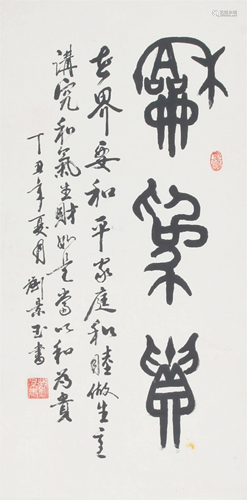 龢為貴
世界要和平家庭和睦做生意
講究和氣生財如是當以和為貴
丁丑年夏月 劉景玉書